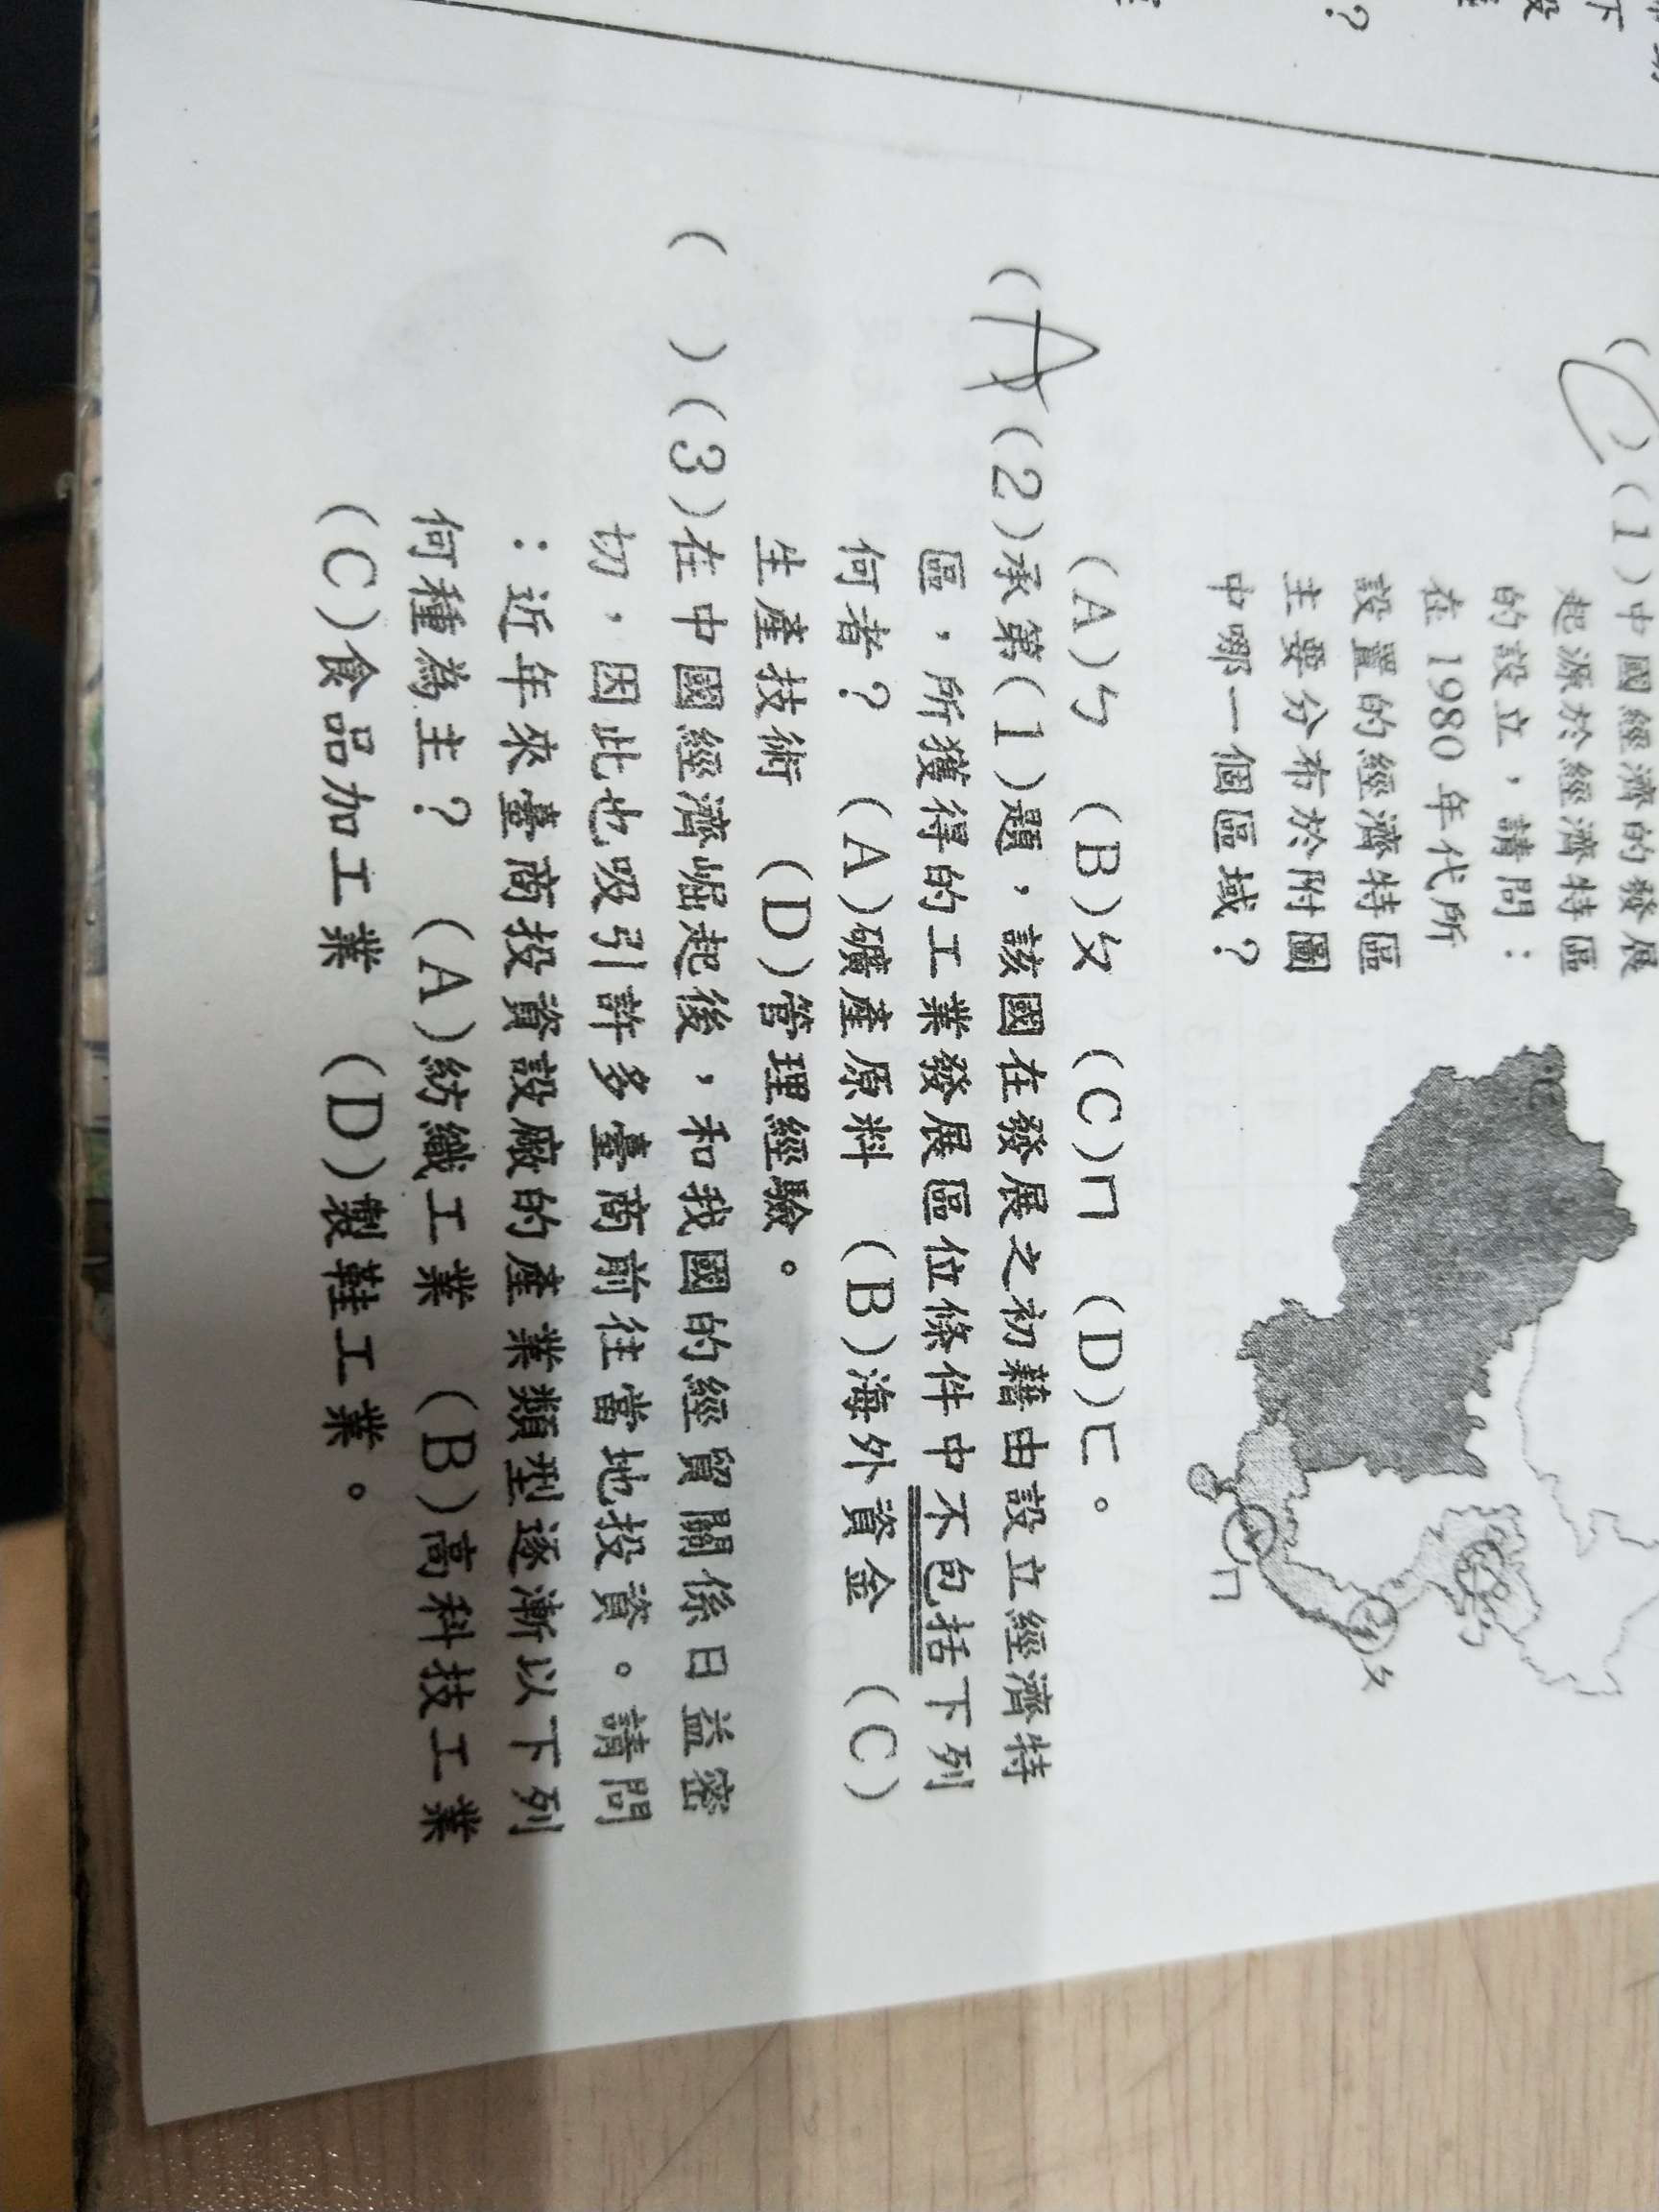 (C)(1)中國經濟的發展
起源於經濟特區
的設立，請問：
在 1980 年代所
設置的經濟特區
主要分布於附圖
中哪一個區域？
ㄅ
ㄆ
ㄇ
(A)ㄅ (B)ㄆ (C)ㄇ (D)ㄈ。
(A)(2)承第(1)題，該國在發展之初藉由設立經濟特
區，所獲得的工業發展區位條件中不包括下列
何者？ (A)礦產原料 (B)海外資金 (C)
生產技術 (D)管理經驗。
( )(3)在中國經濟崛起後，和我國的經貿關係日益密
切，因此也吸引許多臺商前往當地投資。請問
：近年來臺商投資設廠的產業類型逐漸以下列
何種為主？ (A)紡織工業 (B)高科技工業
(C)食品加工業 (D)製鞋工業。